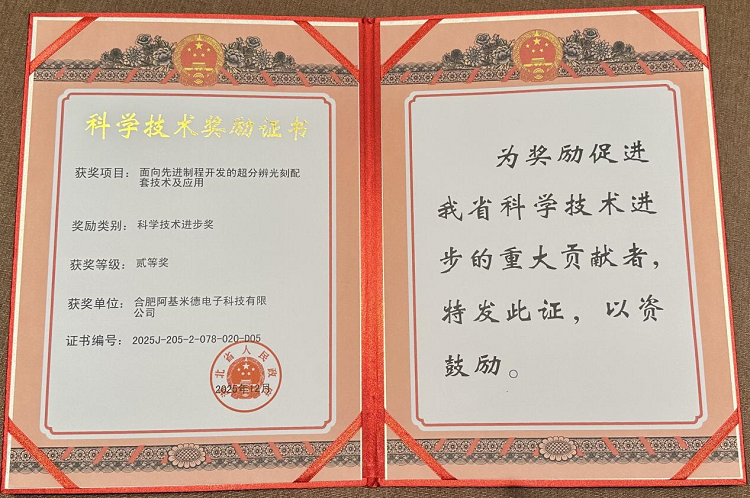 科学技术奖励证书
获奖项目：面向先进制程开发的超分辨光刻配
套技术及应用
奖励类别：科学技术进步奖
获奖等级：贰等奖
获奖单位：合肥阿基米德电子科技有限
公司
证书编号：2025J-205-2-078-020-D05
北省人民政府
2025年12月
为奖励促进
我省科学技术进
步的重大贡献者，
特发此证，以资
鼓励。